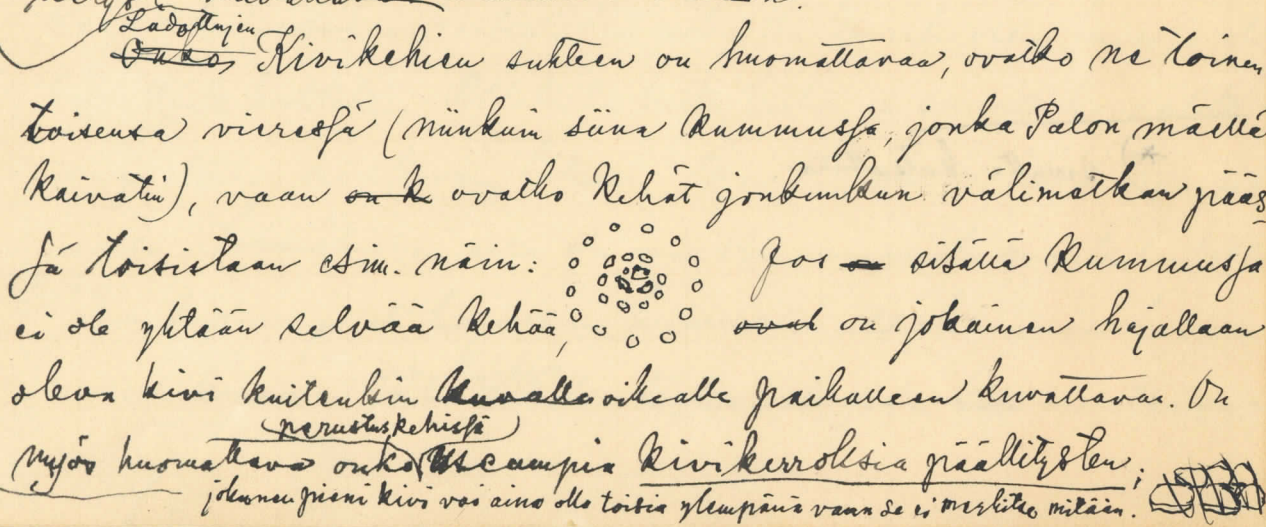 Ladottujen
Onko Kivikehien suhteen on huomattavaa, ovatko ne toinen
toisensa vieressä (niinkuin siinä kummussa, jonka Palon mäellä
kaivatin), vaan on k ovatko kehät jonkunkun välimatkan pääs-
sä toisistaan esim. näin: Jos on sisällä kummussa
ei ole yhtään selvää kehää, ovat on jokainen hajallaan
oleva kivi kuitenkin kuvalla oikealle paikalleen kuvattava. On
peruskehissä
myös huomattava onko useampia kivikerroksia päällitysten;
joku pieni kivi voi aina olla toisia ylempänä vaan se ei merkitse mitään.